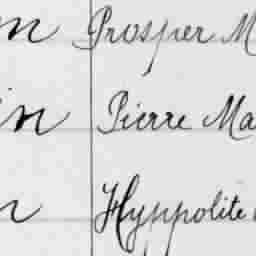 Prosper M
Pierre Ma
Hyppolite